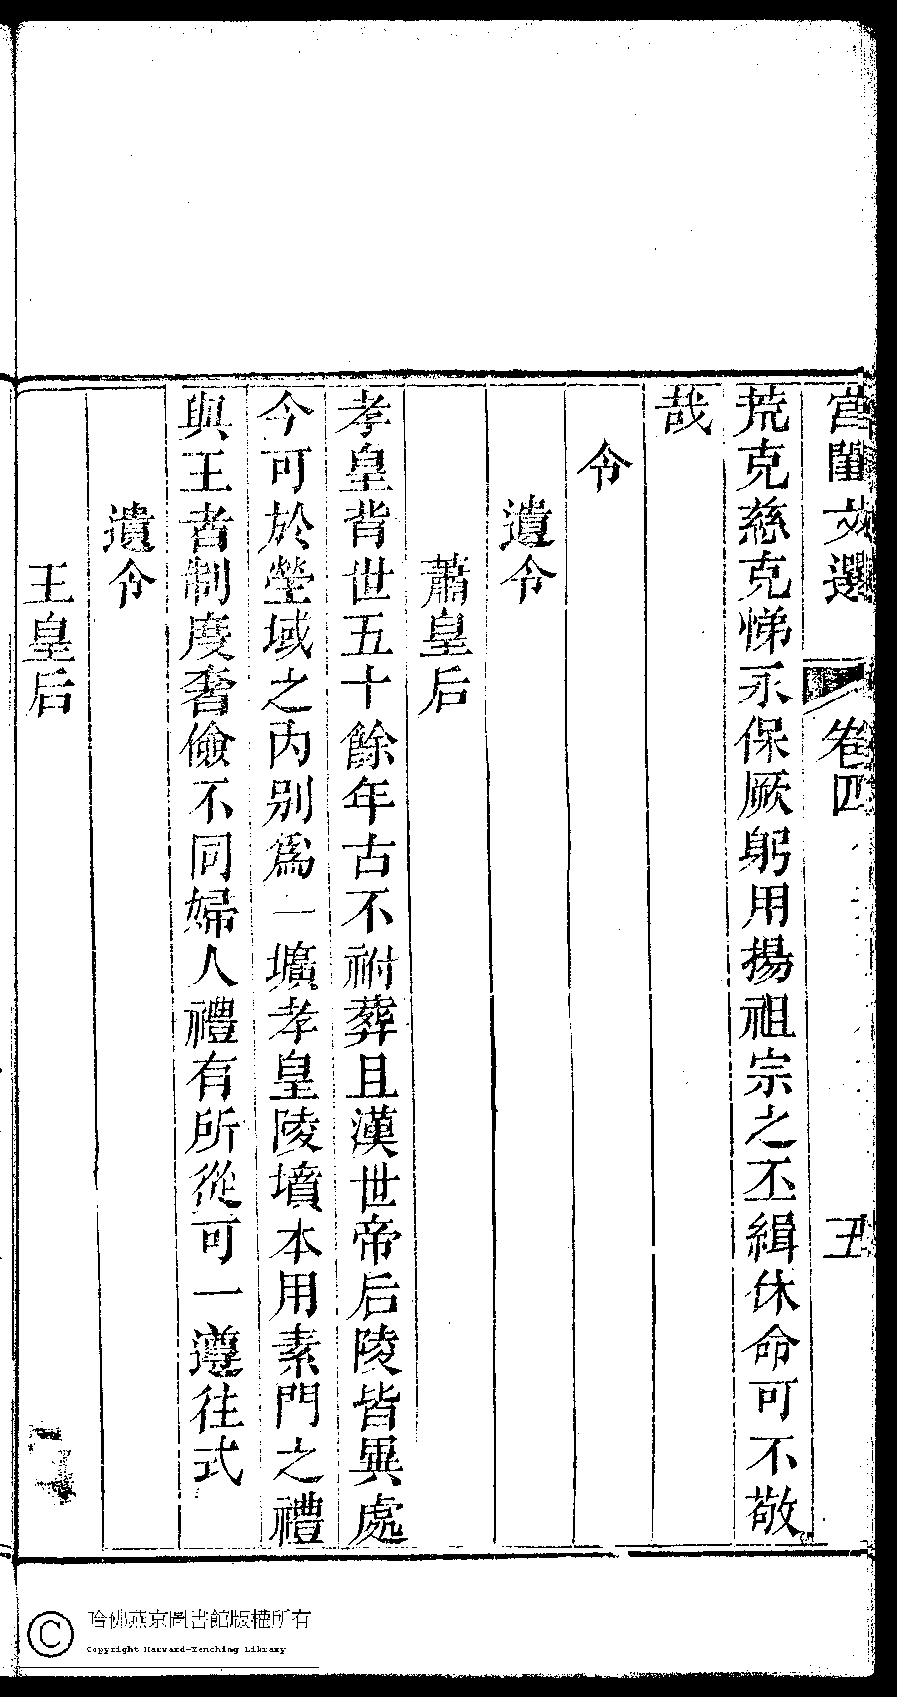 宫閨文選 卷四 五
荒克慈克悌永保厥躬用揚祖宗之丕緝休命可不敬
哉
令
遺令
蕭皇后
孝皇背世五十餘年古不祔葬且漢世帝后陵皆異處
今可於塋域之内别爲一壙孝皇陵墳本用素門之禮
與王者制度奢儉不同婦人禮有所從可一遵往式
遺令
王皇后
哈佛燕京圖書館版權所有
Copyright Harvard-Yenching Library